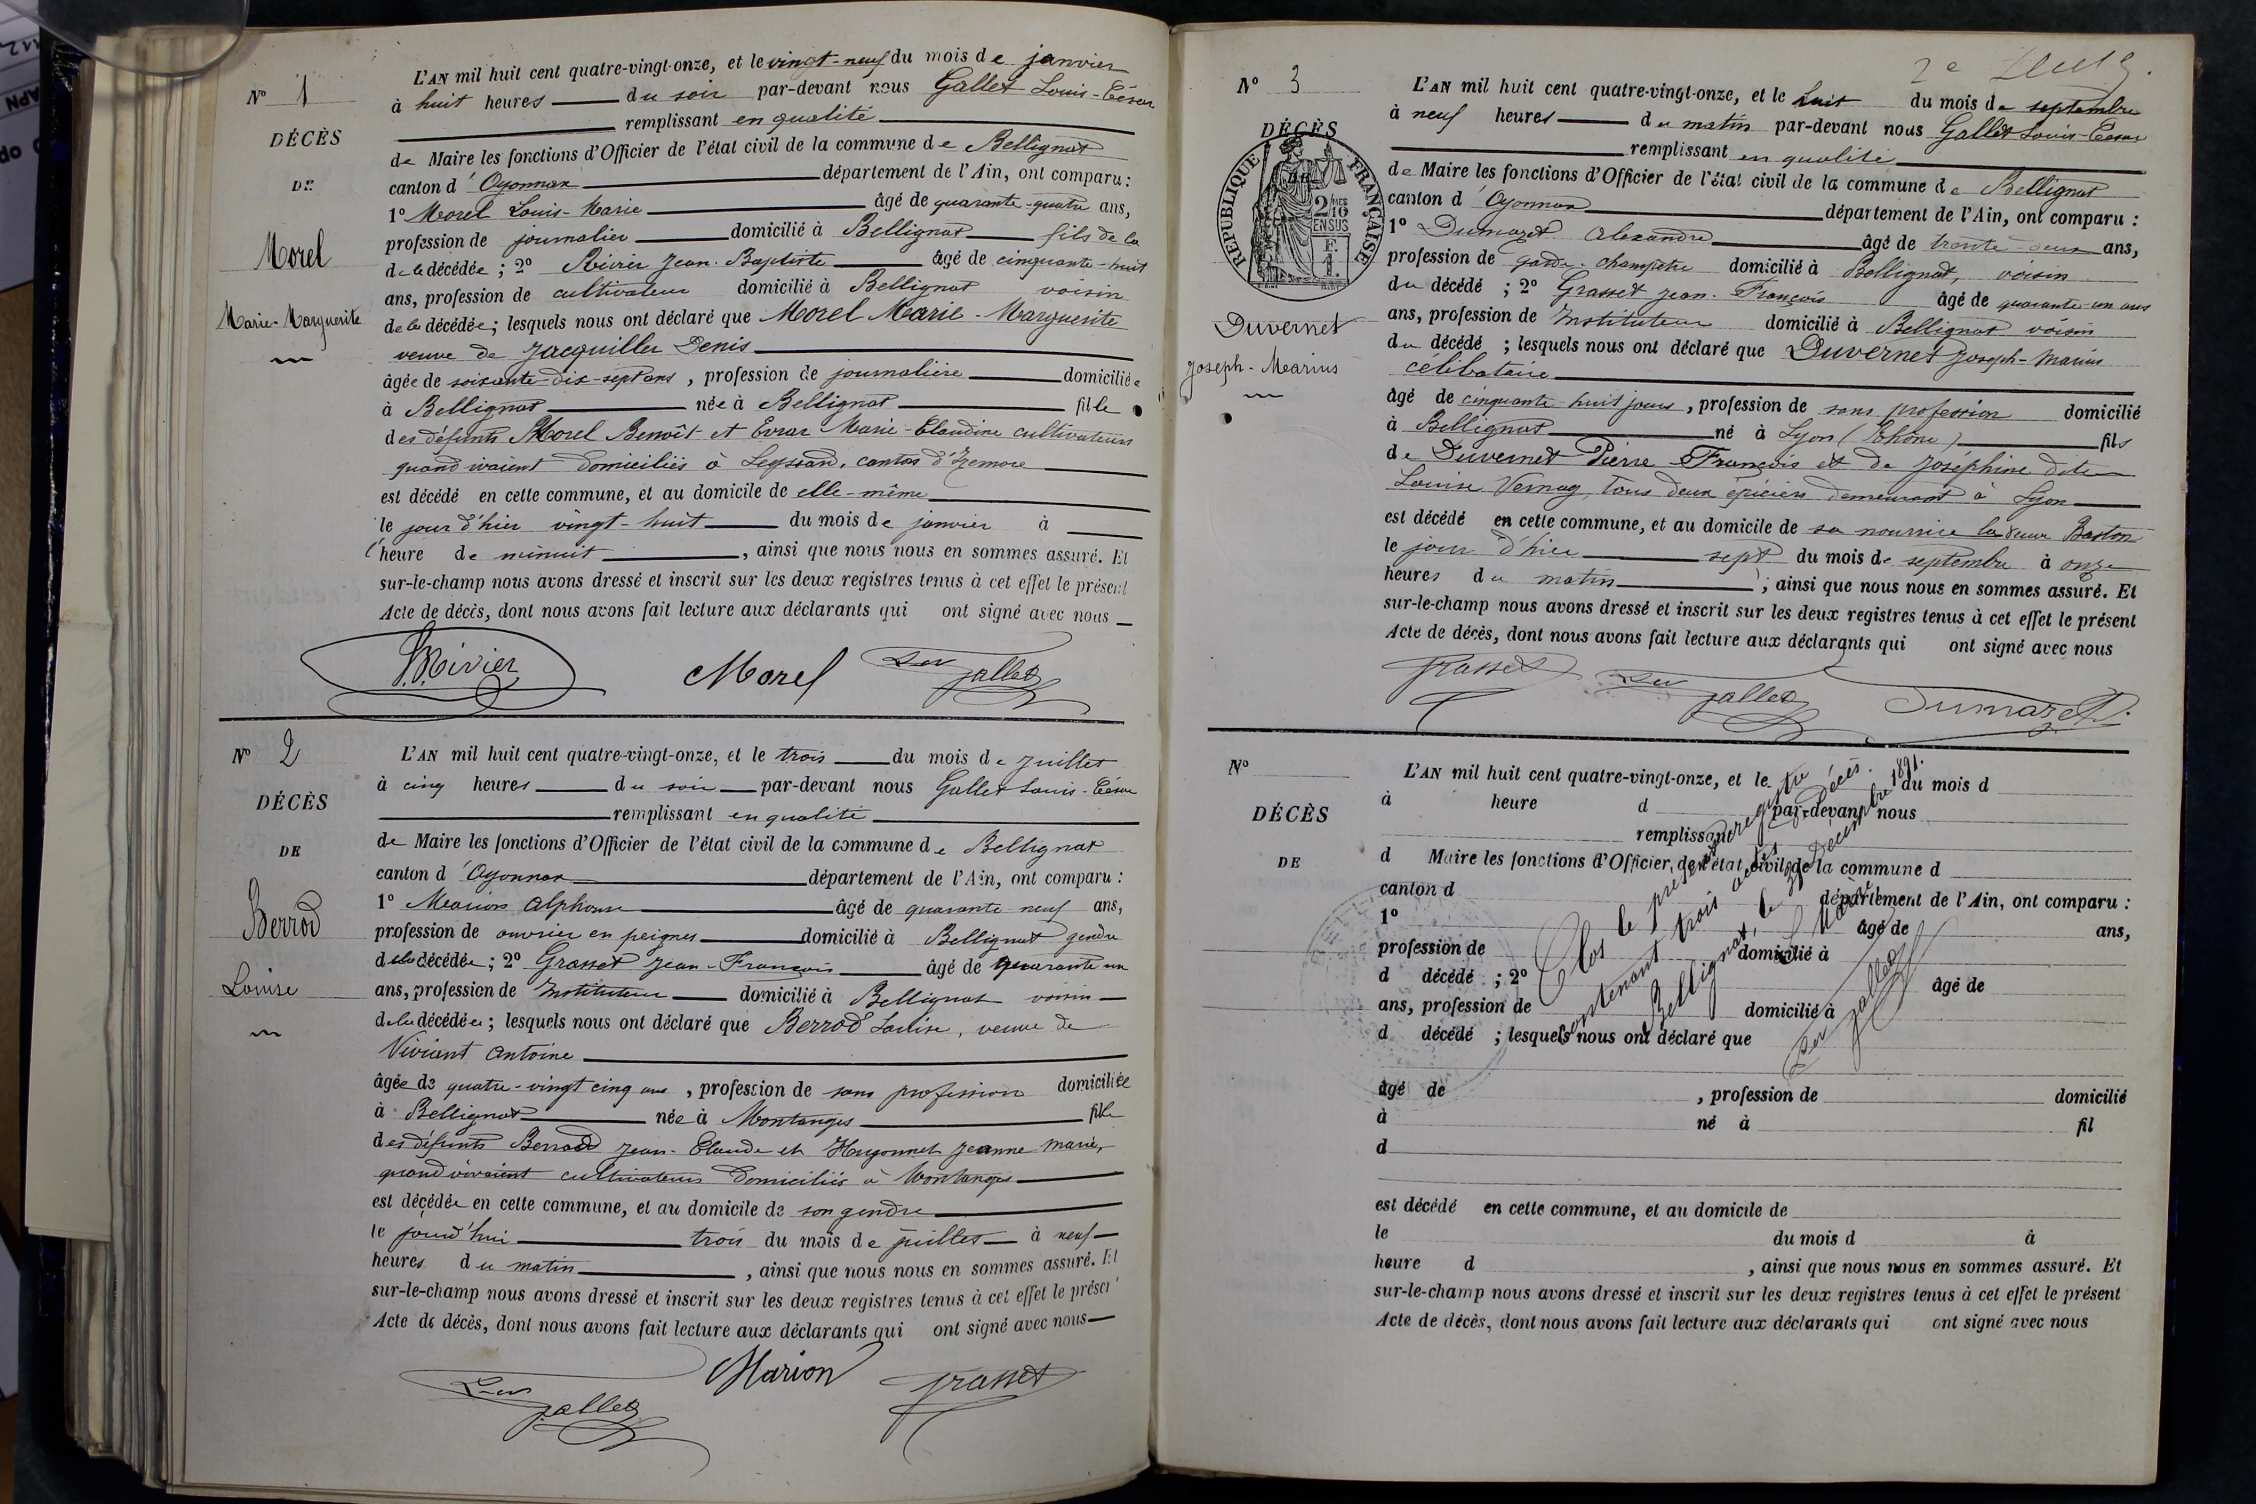 N° 1
DÉCÈS
DE
Morel
Marie-Marguerite
L'AN mil huit cent quatre-vingt-onze, et le vingt-neuf du mois de janvier
à huit heures du soir par-devant nous Gallet Louis-César
remplissant en qualité
de Maire les fonctions d'Officier de l'état civil de la commune de Bellignat
canton d'Oyonnax département de l'Ain, ont comparu :
1° Morel Louis-Marie âgé de quarante-quatre ans,
profession de journalier domicilié à Bellignat fils de la
de la décédée ; 2° Rivier Jean-Baptiste âgé de cinquante-huit
ans, profession de cultivateur domicilié à Bellignat voisin
de la décédée ; lesquels nous ont déclaré que Morel Marie-Marguerite
veuve de Jacquiller Denis
âgée de soixante-dix-sept ans, profession de journalière domiciliée
à Bellignat née à Bellignat fille
des défunts Morel Benoît et Evrar Marie-Claudine cultivateurs
quand vivaient domiciliés à Leyssard, canton d'Izernore
est décédé en cette commune, et au domicile de elle-même
le jour d'hier vingt-huit du mois de janvier à
l'heure de minuit, ainsi que nous nous en sommes assuré. Et
sur-le-champ nous avons dressé et inscrit sur les deux registres tenus à cet effet le présent
Acte de décès, dont nous avons fait lecture aux déclarants qui ont signé avec nous
J. Rivier Morel Ler Gallet
N° 2
DÉCÈS
DE
Berrod
Louise
L'AN mil huit cent quatre-vingt-onze, et le trois du mois de juillet
à cinq heures du soir par-devant nous Gallet Louis-César
remplissant en qualité
de Maire les fonctions d'Officier de l'état civil de la commune de Bellignat
canton d'Oyonnax département de l'Ain, ont comparu :
1° Marion Alphonse âgé de quarante neuf ans,
profession de ouvrier en peignes domicilié à Bellignat gendre
de la décédée ; 2° Grasset Jean-François âgé de quarante un
ans, profession de Instituteur domicilié à Bellignat voisin
de la décédée ; lesquels nous ont déclaré que Berrod Louise, veuve de
Vivient Antoine
âgée de quatre-vingt cinq ans, profession de sans profession domiciliée
à Bellignat née à Montanges fille
des défunts Berrod Jean-Claude et Hugonnet Jeanne Marie,
quand vivaient cultivateurs domiciliés à Montanges
est décédée en cette commune, et au domicile de son gendre
le jourd'hui trois du mois de juillet à neuf
heures du matin, ainsi que nous nous en sommes assuré. Et
sur-le-champ nous avons dressé et inscrit sur les deux registres tenus à cet effet le présent
Acte de décès, dont nous avons fait lecture aux déclarants qui ont signé avec nous
Ler Gallet Marion Grasset
2e
N° 3
DÉCÈS
DE
RÉPUBLIQUE FRANÇAISE
2 MES 16
EN SUS
Duvernet
Joseph-Marius
L'AN mil huit cent quatre-vingt-onze, et le huit du mois de septembre
à neuf heures du matin par-devant nous Gallet Louis-César
remplissant en qualité
de Maire les fonctions d'Officier de l'état civil de la commune de Bellignat
canton d'Oyonnax département de l'Ain, ont comparu :
1° Dumaret Alexandre âgé de trente-deux ans,
profession de garde-champêtre domicilié à Bellignat, voisin
du décédé ; 2° Grasset Jean-François âgé de quarante-un ans
ans, profession de Instituteur domicilié à Bellignat voisin
du décédé ; lesquels nous ont déclaré que Duvernet Joseph-Marius
célibataire
âgé de cinquante-huit jours, profession de sans profession domicilié
à Bellignat né à Lyon (Rhône) fils
de Duvernet Pierre François et de Joséphine dite
Louise Vernay, tous deux épiciers demeurant à Lyon
est décédé en cette commune, et au domicile de sa nourrice la veuve Baston
le jour d'hier sept du mois de septembre à onze
heures du matin ; ainsi que nous nous en sommes assuré. Et
sur-le-champ nous avons dressé et inscrit sur les deux registres tenus à cet effet le présent
Acte de décès, dont nous avons fait lecture aux déclarants qui ont signé avec nous
Grasset Ler Gallet Dumaret
N°
DÉCÈS
DE
L'AN mil huit cent quatre-vingt-onze, et le du mois d
à heure d par-devant nous
remplissant
d Maire les fonctions d'Officier de l'état civil de la commune d
canton d département de l'Ain, ont comparu :
1° âgé de ans,
profession de domicilié à
d décédé ; 2° âgé de
ans, profession de domicilié à
d décédé ; lesquels nous ont déclaré que
âgé de , profession de domicilié
à né à fil
d
est décédé en cette commune, et au domicile de
le du mois d à
heure d , ainsi que nous nous en sommes assuré. Et
sur-le-champ nous avons dressé et inscrit sur les deux registres tenus à cet effet le présent
Acte de décès, dont nous avons fait lecture aux déclarants qui ont signé avec nous
Clos le présent registre
contenant trois actes de Décès.
Bellignat, le 31 Décembre 1891.
Le Maire
Ler Gallet